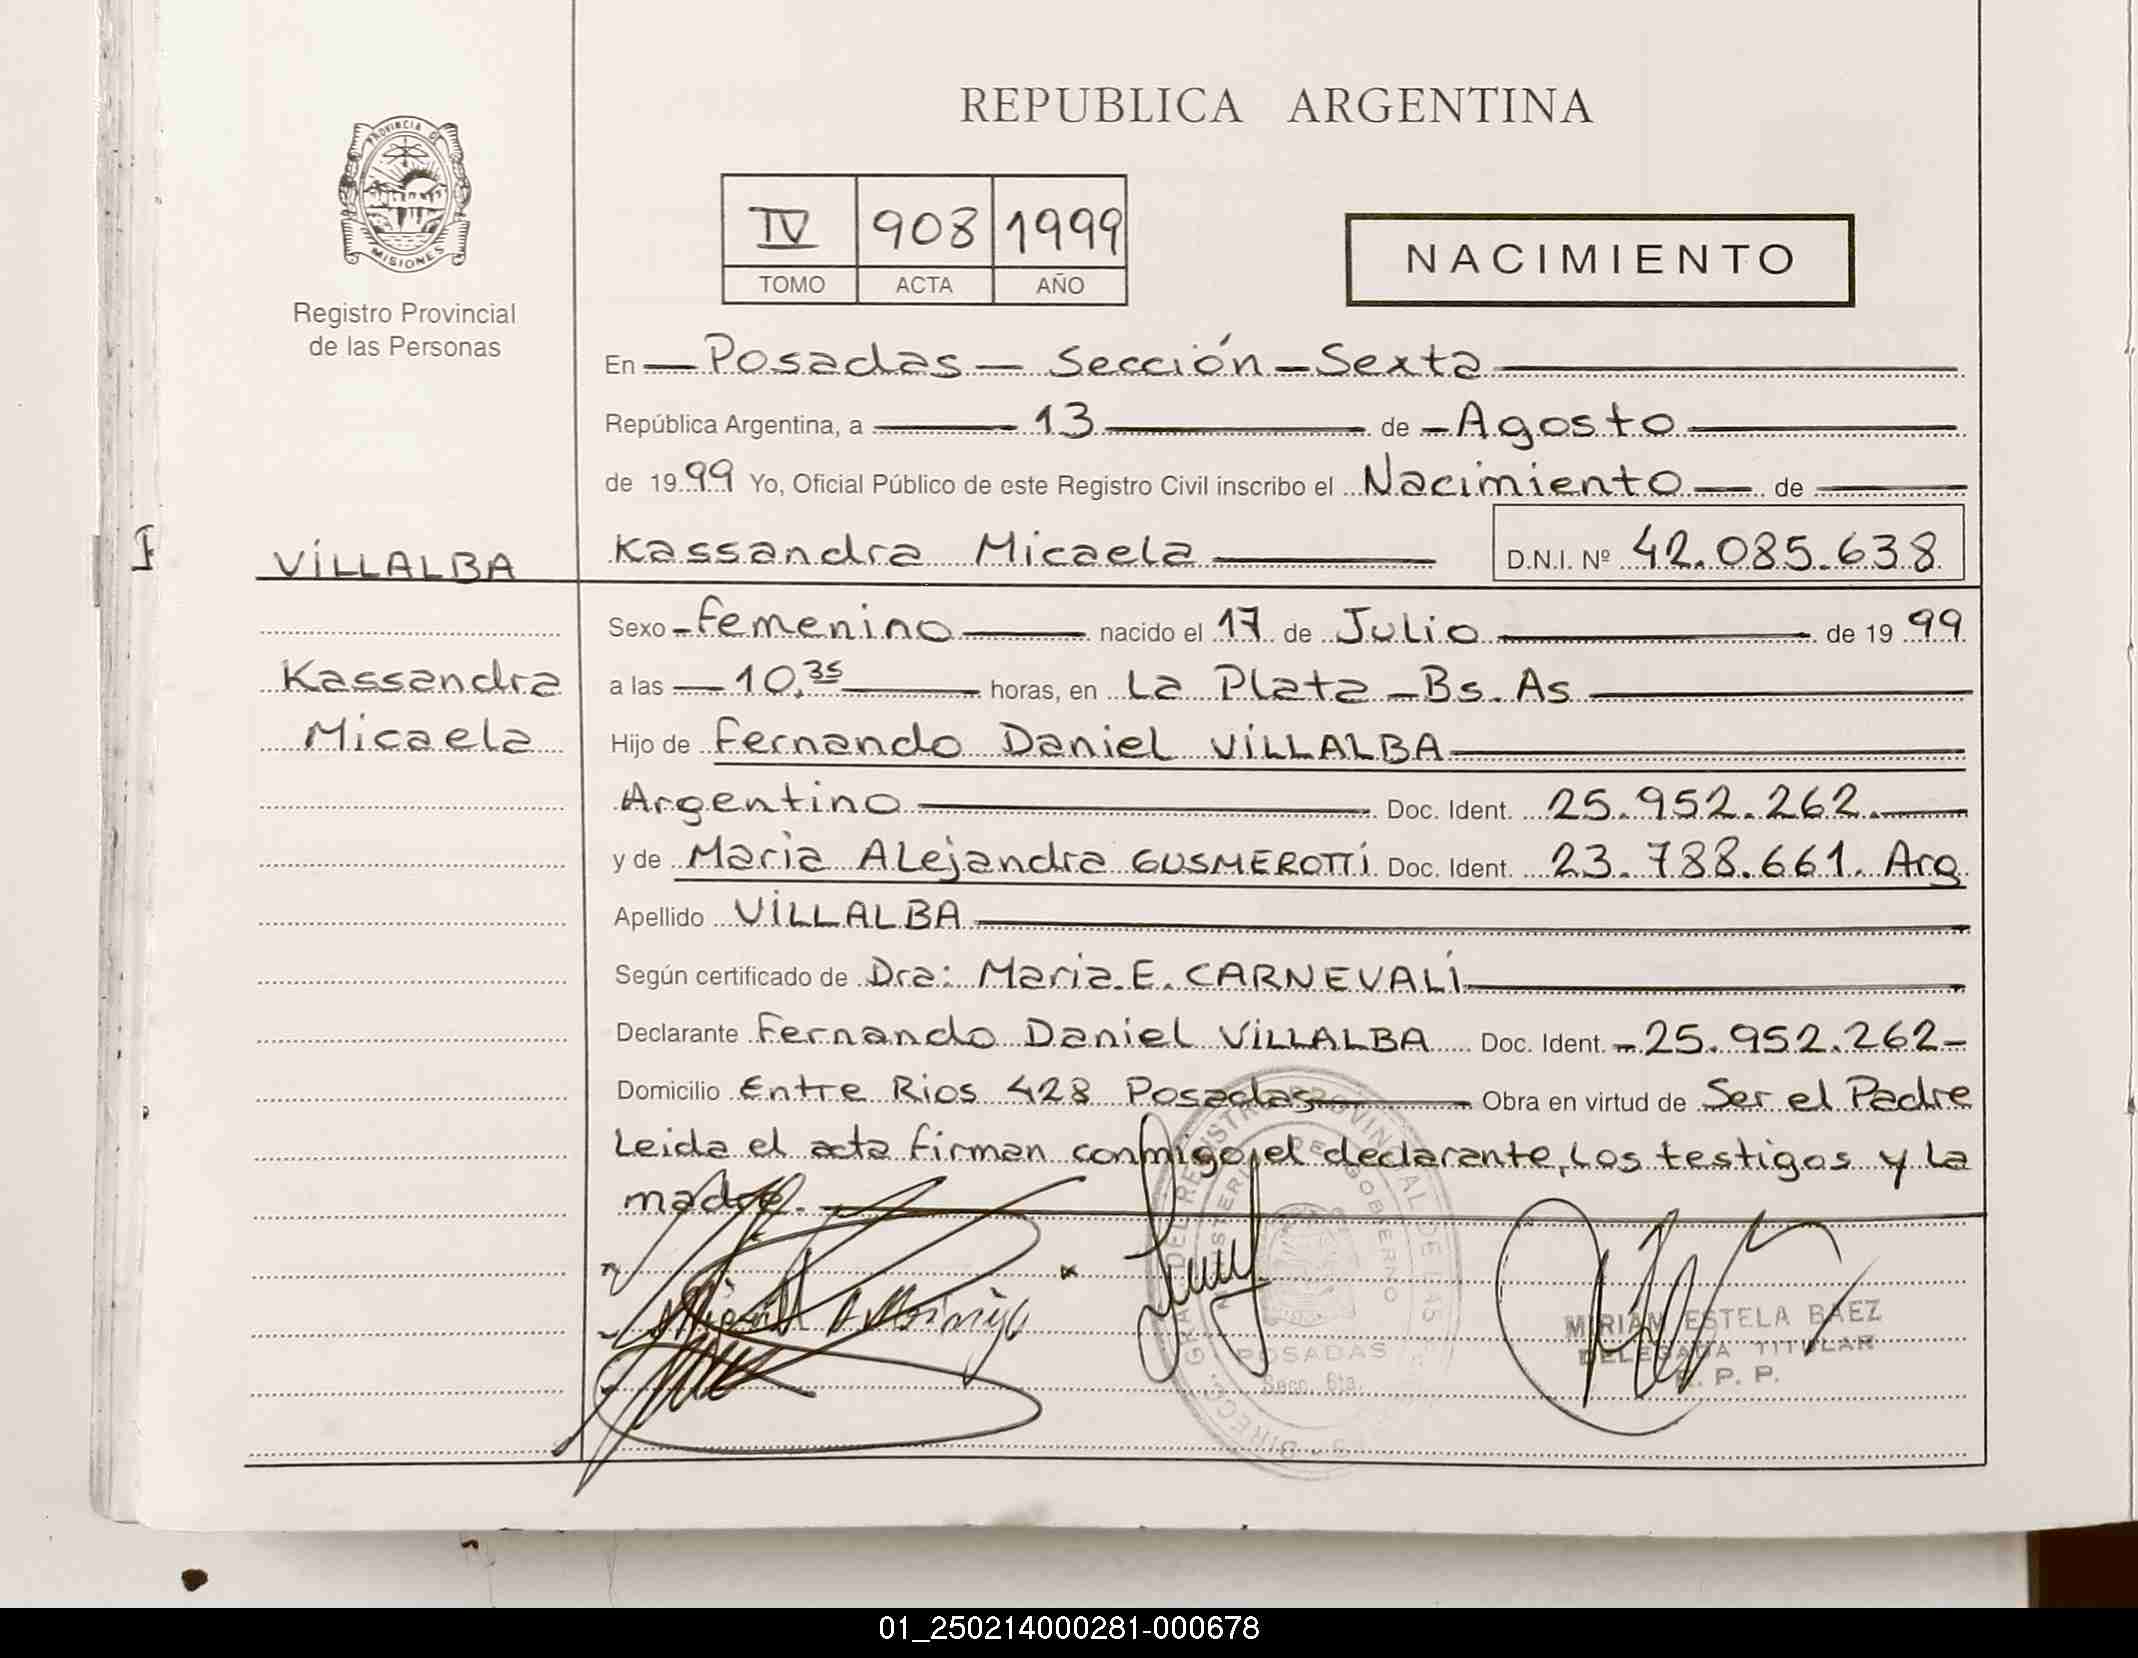 REPUBLICA ARGENTINA
PROVINCIA DE
MISIONES
Registro Provincial
de las Personas
IV 908 1999
TOMO ACTA AÑO
NACIMIENTO
En — Posadas — Sección — Sexta
República Argentina, a 13 de Agosto
de 1999 Yo, Oficial Público de este Registro Civil inscribo el Nacimiento de
VILLALBA
Kassandra Micaela D.N.I. Nº 42.085.638
Sexo femenino nacido el 17 de Julio de 1999
Kassandra
a las 10,35 horas, en La Plata — Bs. As
Micaela
Hijo de Fernando Daniel VILLALBA
Argentino Doc. Ident. 25.952.262.
y de Maria Alejandra GUSMEROTTI Doc. Ident. 23.788.661. Arg
Apellido VILLALBA
Según certificado de Dra: Maria E. CARNEVALI
Declarante Fernando Daniel VILLALBA Doc. Ident. — 25.952.262 —
Domicilio Entre Rios 428 Posadas Obra en virtud de Ser el Padre
Leida el acta firman conmigo, el declarante, los testigos y la
madre.
MIRIAN ESTELA BAEZ
DELEGADA TITULAR
R. P. P.
POSADAS
Secc. 6ta.
01_250214000281-000678